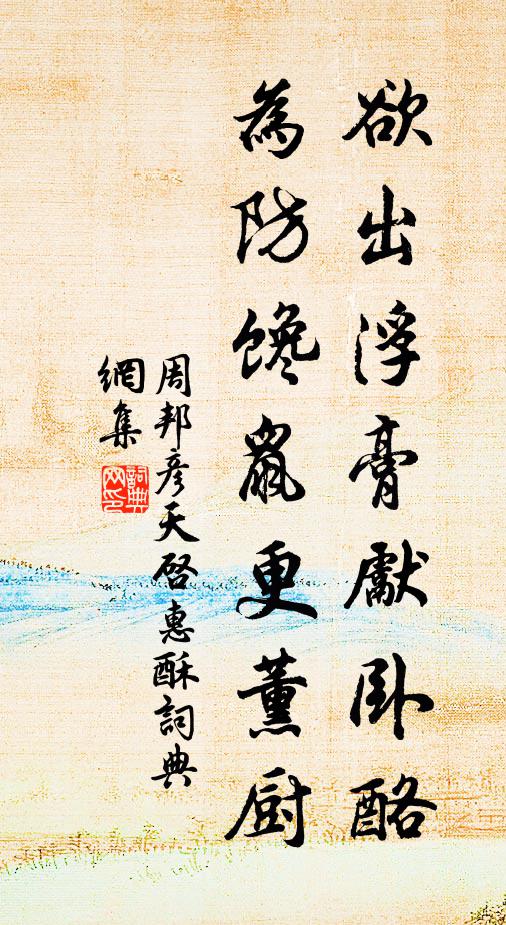 欲出浮膏獻卧酪
為防馋鼠更薰厨
周邦彦天啓惠酥詞典
網集
詞典网印